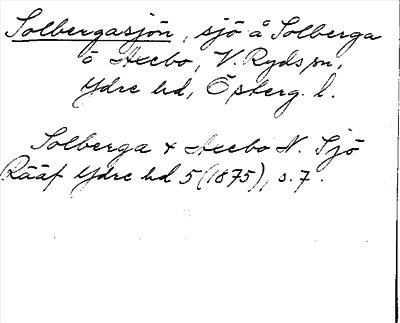 Solbergasjön, sjö å Solberga
o Aeebo, V. Ryds sn,
Ydre hd, Österg. l.
Solberga & Aeebo N. Sjö
Rääf Ydre hd 5 (1875), s. 7.